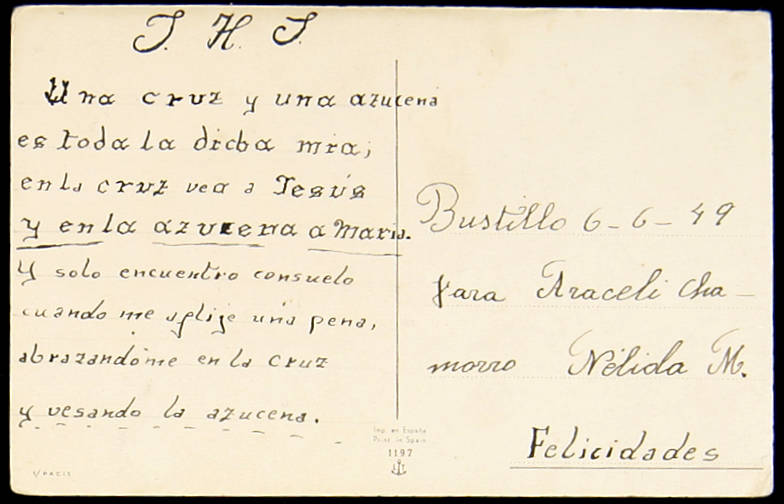 J. H. J.
Una cruz y una azucena
es toda la dicha mia;
en la cruz vea a Jesús
y en la azucena a Maria.
Y solo encuentro consuelo
cuando me aplije una pena,
abrazandóme en la cruz
y vesando la azucena.
Bustillo 6-6-49
para Araceli Cha-
morro Nélida M.
Felicidades
Imp. en España
Print. in Spain
1197